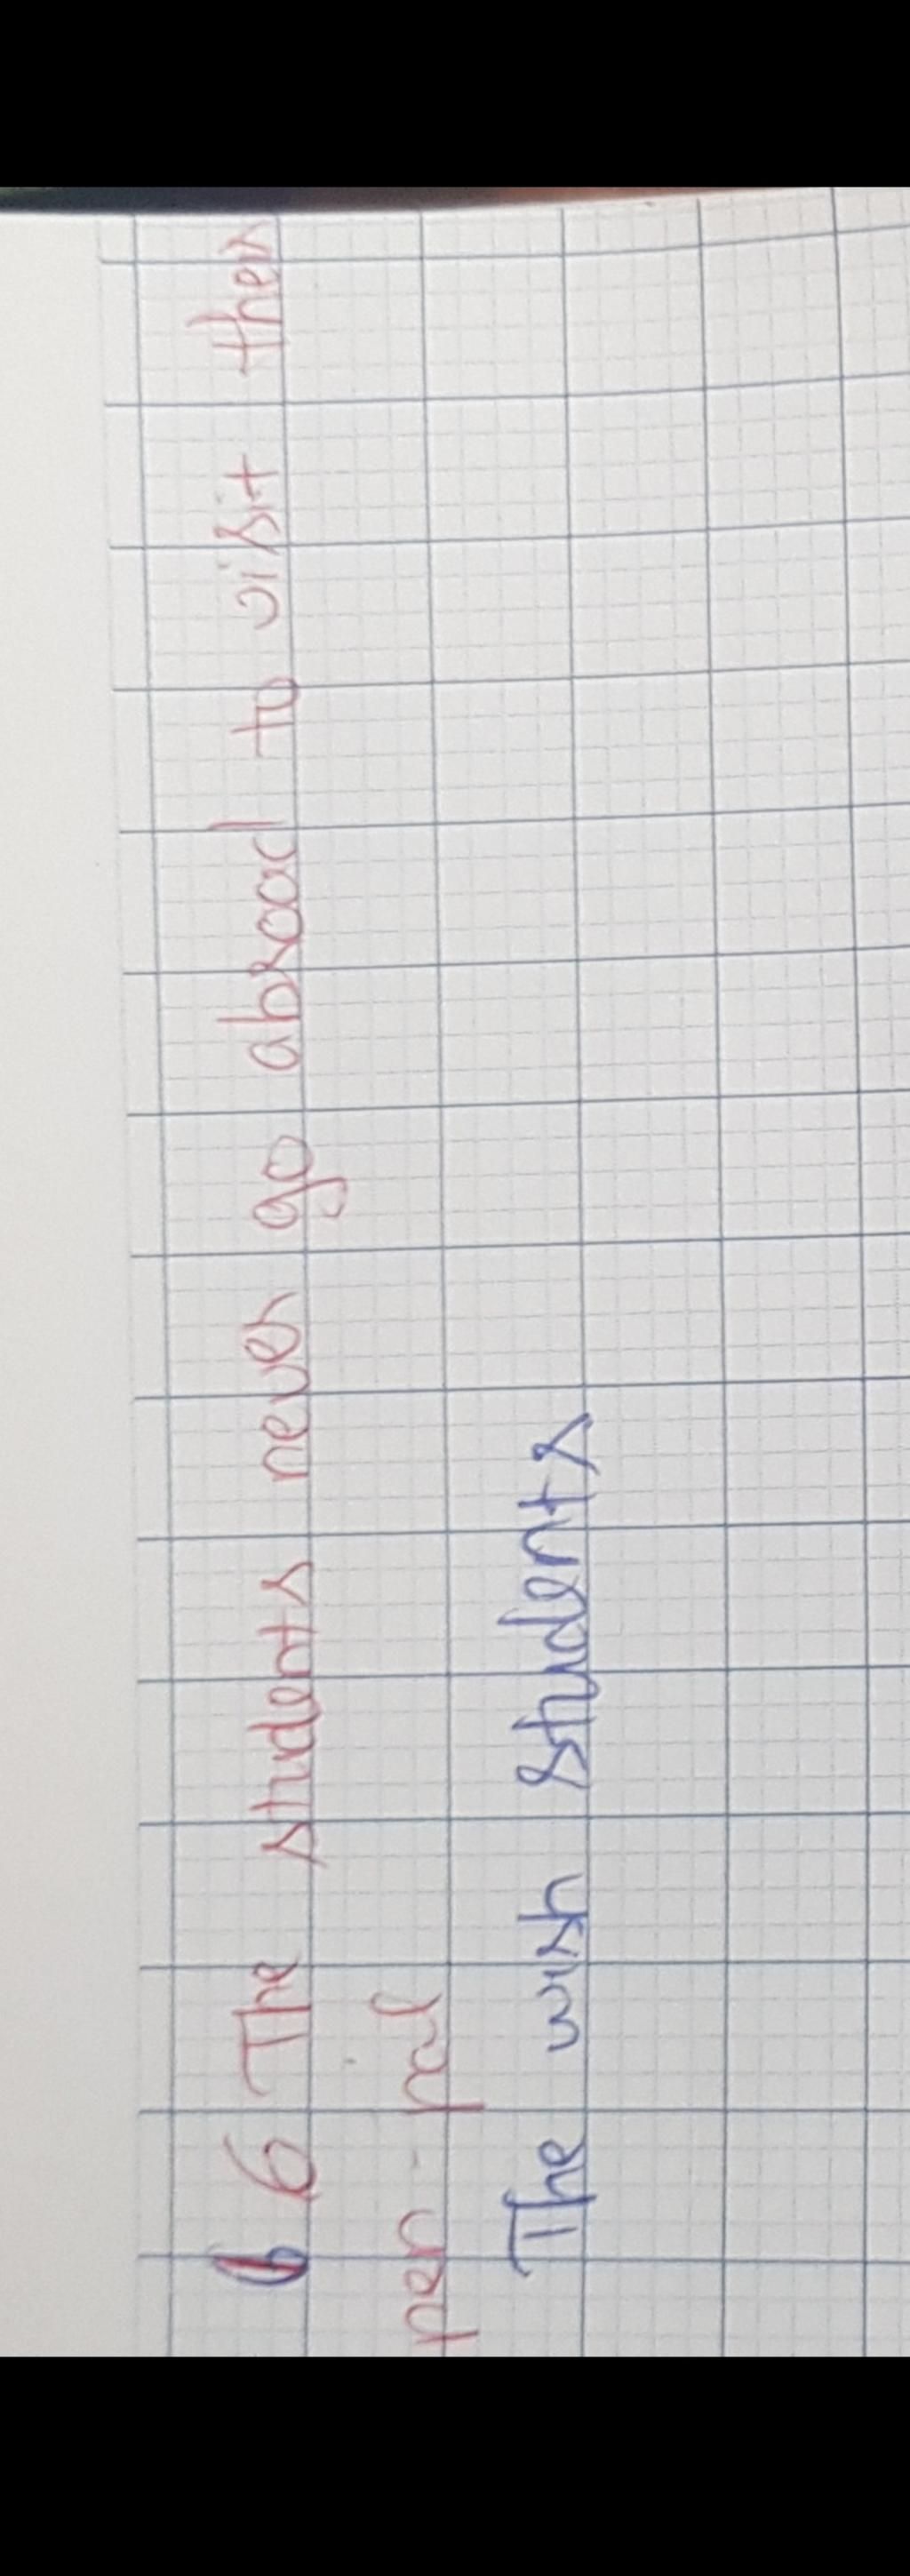 6 6 The students never go abroad to visit their
pen-pal
The wish students